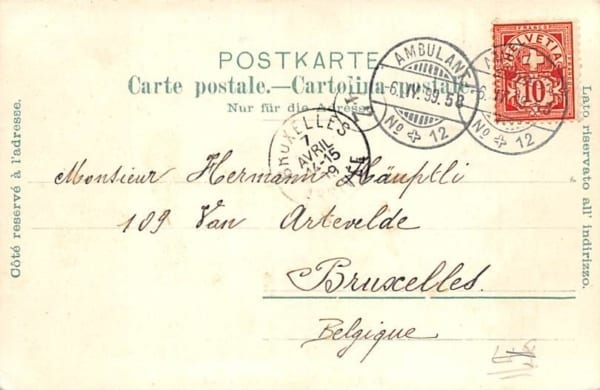 POSTKARTE
Carte postale.—Cartolina postale.
Nur für die Adresse
Côté reservé à l'adresse.
Lato riservato all' indirizzo.
HELVETIA
FRANCO
10
AMBULANT
6.IV.99.5 8
No 12
AMBULANT
No 12
BRUXELLES
7
AVRIL
-15
Monsieur Hermann Häuptli
109 Van Artevelde
Bruxelles.
Belgique